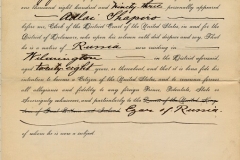 one thousand eight hundred and ninety three personally appeared
before me, Clerk of the District Court of the United States, in and for the
District of Delaware, who upon his solemn oath did depose and say: That
he is a native of Russia now residing in
Wilmington in the District aforesaid,
aged twenty eight years or thereabout, and that it is bona fide his
intention to become a Citizen of the United States, and to renounce forever
all allegiance and fidelity to any foreign Prince, Potentate, State or
Sovereignty whatever, and particularly to the
Czar of Russia
of whom he is now a subject